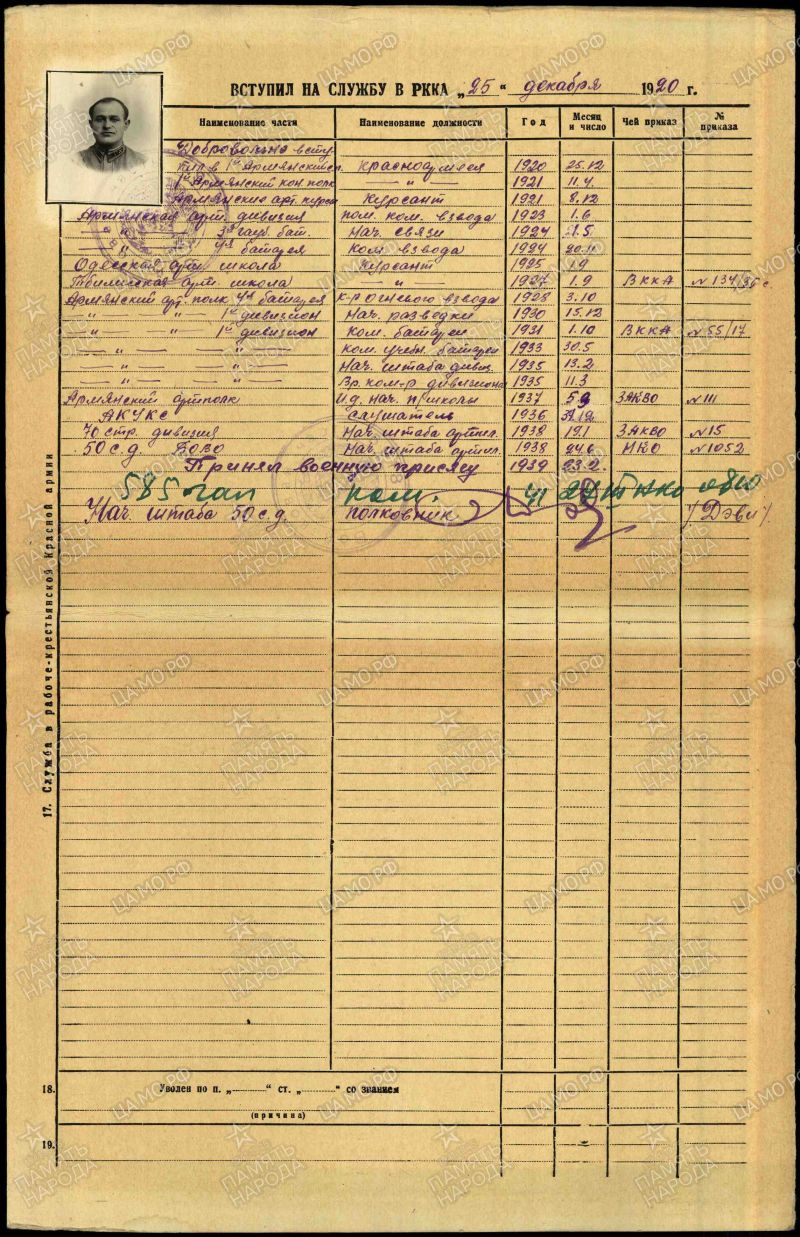 ВСТУПИЛ НА СЛУЖБУ В РККА „25“ декабря 1920 г.
Наименование части Наименование должности Год Месяц и число Чей приказ № приказа
Добровольно всту-
пил в 1й Армянский красноармеец 1920 25.12
1й Армянский кон. полк — " — 1921 11.4
Армянские арт. курсы Курсант 1921 8.12
Армянская арт. дивизия пом. ком. взвода 1923 1.6
— " — 3я гауб. бат. Нач. связи 1924 1.5
— " — 4я батарея Ком. взвода 1924
Одесская арт. школа Курсант 1925 1.9
Тбилисская арт. школа — " — 1927 1.9 ВККА №134/
Армянский арт. полк 4я батарея к-р огневого взвода 1928 3.10
— " — " — 1й дивизион Нач. разведки 1930 15.12
— " — " — 1й дивизион Ком. батареи 1931 1.10 ВККА №55/17
— " — " — " — Ком. учебн. батареи 1933 30.5
— " — " — " — Нач. штаба дивиз. 1935 13.2
— " — " — " — Вр. ком-р дивизиона 1935 11.3
Армянский артполк И.д. нач. п/школы 1937 5.9 ЗАКВО №111
АКУКС Слушатель 1936
70 стр. дивизия Нач. штаба артил. 1938 19.1 ЗАКВО №15
50 с.д. БОВО Нач. штаба артил. 1938 24.6 НКО №1052
Принял военную присягу 1939 23.2
585 гап ком. 41 НКО
Нач штаба 50 с.д. полковник /Дэви/.
17. Служба в рабоче-крестьянской Красной армии
18. Уволен по п. „ “ ст. „ “ со званием
(причина)
19.
ПАМЯТЬ НАРОДА
ЦАМО.РФ